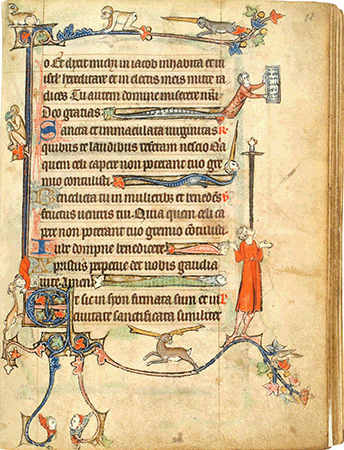 o. Et dixit michi in iacob inhabita et in
isrl hereditare et in electis meis mitte ra
dices. Tu autem domine miserere nr̄i
Deo gratias
Sancta et inmaculata uirginitas
quibus te laudibus referam nescio Qa
quem celi capere non poterant tuo gre
mio contulisti
Benedicta tu in mulieribus et benedc̄s
fructus uentris tui. Quia quem celi ca
pere non poterant tuo gremio cōtulisti
Iube dompne benedicere
Xpistus perpetue det nobis gaudia
uite. Amen
Et sic in syon firmata sum et in
ciuitate sanctificata similiter